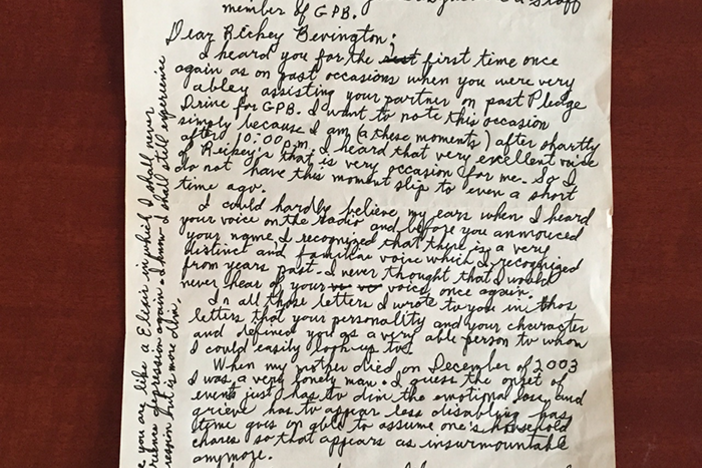 Staff
member of GPB.
Dear Rickey Bevington:
I heard you for the first time once
again as on past occasions when you were very
abley assisting your partner on past Pledge
Drive for GPB. I want to note this occasion
simply because I am (a these moments) after shortly
after 10:00 p.m. I heard that very excellent voice
of Rickey's that is very occasion for me. So I
do not have this moment slip to even a short
time ago.
I could hardly believe my ears when I heard
your voice on the radio and before you announced
your name, I recognized that there is a very
distinct and familiar voice which I recognized
from years past. I never thought that I would
never hear of your voice, once again.
In all those letters I wrote to you in thos
letters that your personality and your character
and defined you as a very able person to whom
I could easily look up to.
When my mother died on December of 2003
I was a very lonely man. I guess the onset of
events just has to dim the emotional loss and
grieve has to appear less disabling has
time goes on able to assume one's household
chores so that appears as insurmountable
anymore.
you are like a Elixir in which I shall never
depression again. I know I shall still experience
but is more dim,